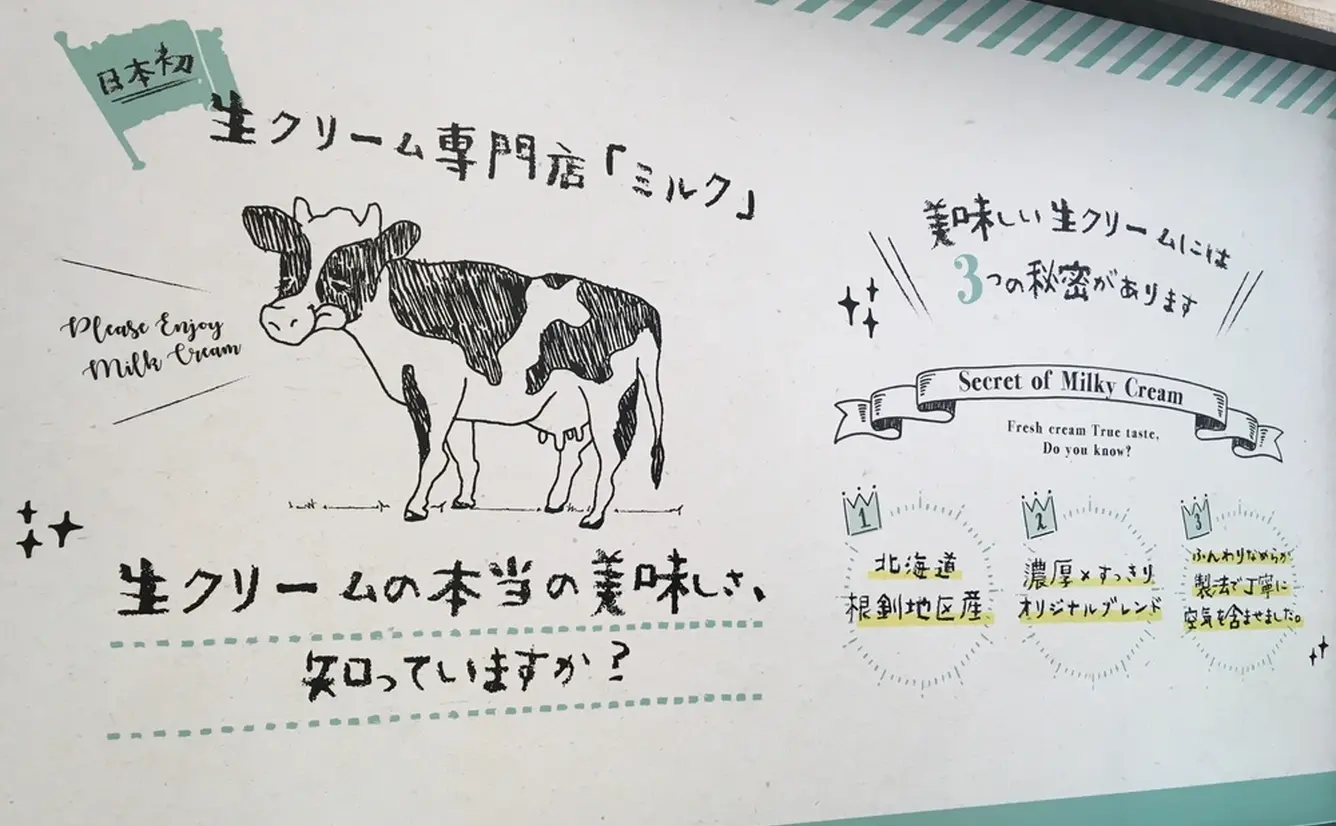 日本初
生クリーム専門店「ミルク」
Please Enjoy
Milk Cream
生クリームの本当の美味しさ、
知っていますか?
美味しい生クリームには
3つの秘密があります
Secret of Milky Cream
Fresh cream True taste,
Do you know?
1
北海道
根釧地区産
2
濃厚×すっきり
オリジナルブレンド
3
ふんわりなめらか
製法で丁寧に
空気を含ませました。